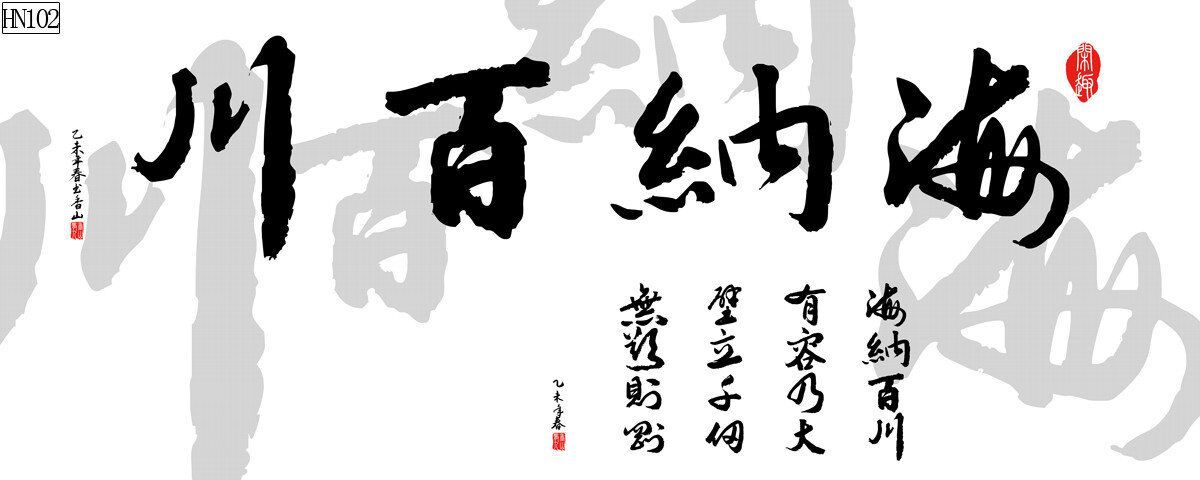 HN102
閑趣
海納百川
乙未年春书香山
海納百川
有容乃大
壁立千仞
無慾則剛
乙未年春